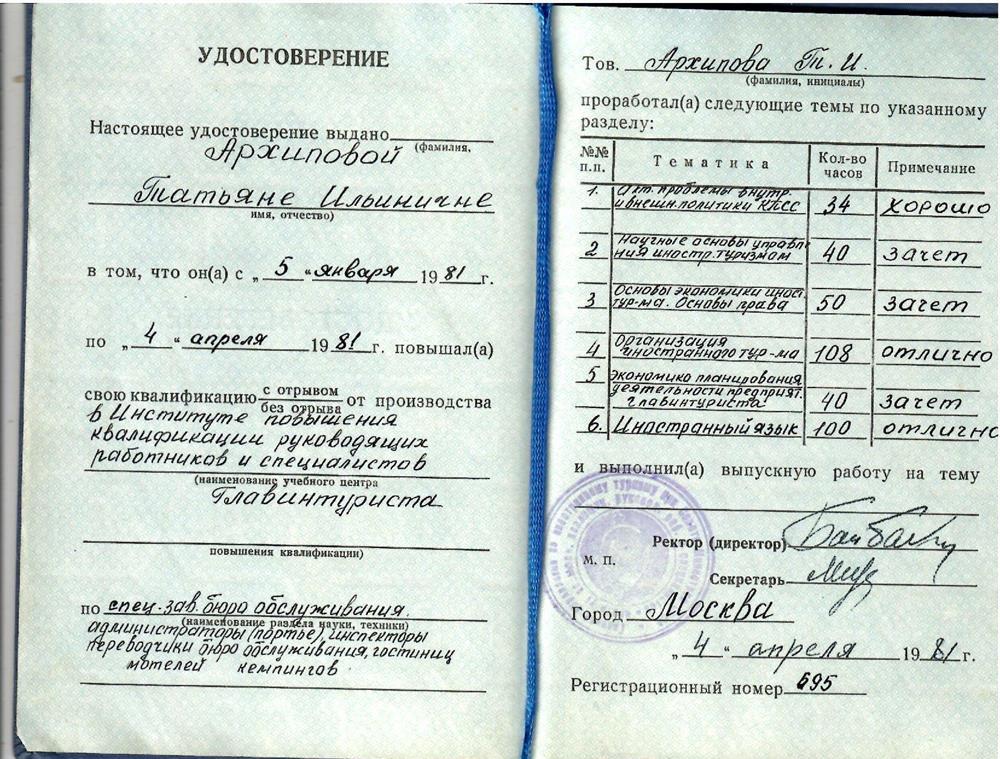 УДОСТОВЕРЕНИЕ
Настоящее удостоверение выдано
Архиповой (фамилия,
Татьяне Ильиничне
имя, отчество)
в том, что он(а) с „ 5 “ января 1981 г.
по „ 4 “ апреля 1981 г. повышал(а)
свою квалификацию с отрывом от производства
без отрыва
в Институте повышения
квалификации руководящих
работников и специалистов
(наименование учебного центра
Главинтуриста
повышения квалификации)
по спец-зав. бюро обслуживания.
(наименование раздела науки, техники)
администраторы (портье), инспекторы
переводчики бюро обслуживания, гостиниц
мотелей кемпингов
Тов. Архипова Т. И.
(фамилия, инициалы)
проработал(а) следующие темы по указанному
разделу:
№№ п.п. Тематика Кол-во часов Примечание
1. Акт. проблемы внутр.
и внешн. политики КПСС 34 хорошо
2 Научные основы управл
ния иностр. туризмом 40 зачет
3 Основы экономики иност.
тур-ма. Основы права 50 зачет
4 Организация
иностранного тур-ма 108 отлично
5 экономико планирования
деятельности предприят.
главинтуриста 40 зачет
6. Иностранный язык 100 отлично
и выполнил(а) выпускную работу на тему
Ректор (директор)
М. П.
Секретарь
Город Москва
„ 4 “ апреля 1981 г.
Регистрационный номер 695